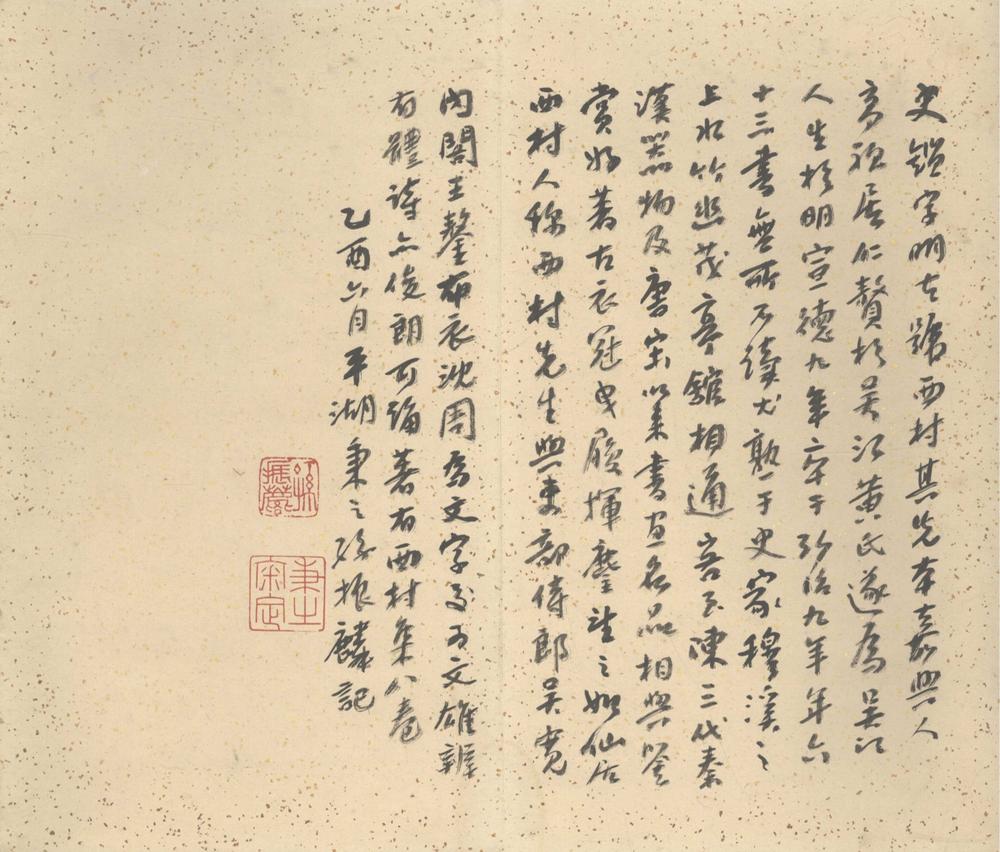 史鑑字明古號西村其先本嘉興人
高祖居仁贅於吳江黃氏遂為吳江
人生於明宣德九年卒于弘治九年年六
十三書無所不讀尤熟于史家穆溪之
上水竹幽茂亭館相通客至陳三代秦
漢器物及唐宋以來書畫名品相與鑒
賞好著古衣冠曳履揮麈望之如仙居
西村人稱西村先生與吏部侍郎吳寬
內閣王鏊布衣沈周為文字友為文雄辨
有體詩亦俊朗可誦著有西村集八卷
乙酉六月平湖秉之孫振麟記
孫振麟
秉之審定